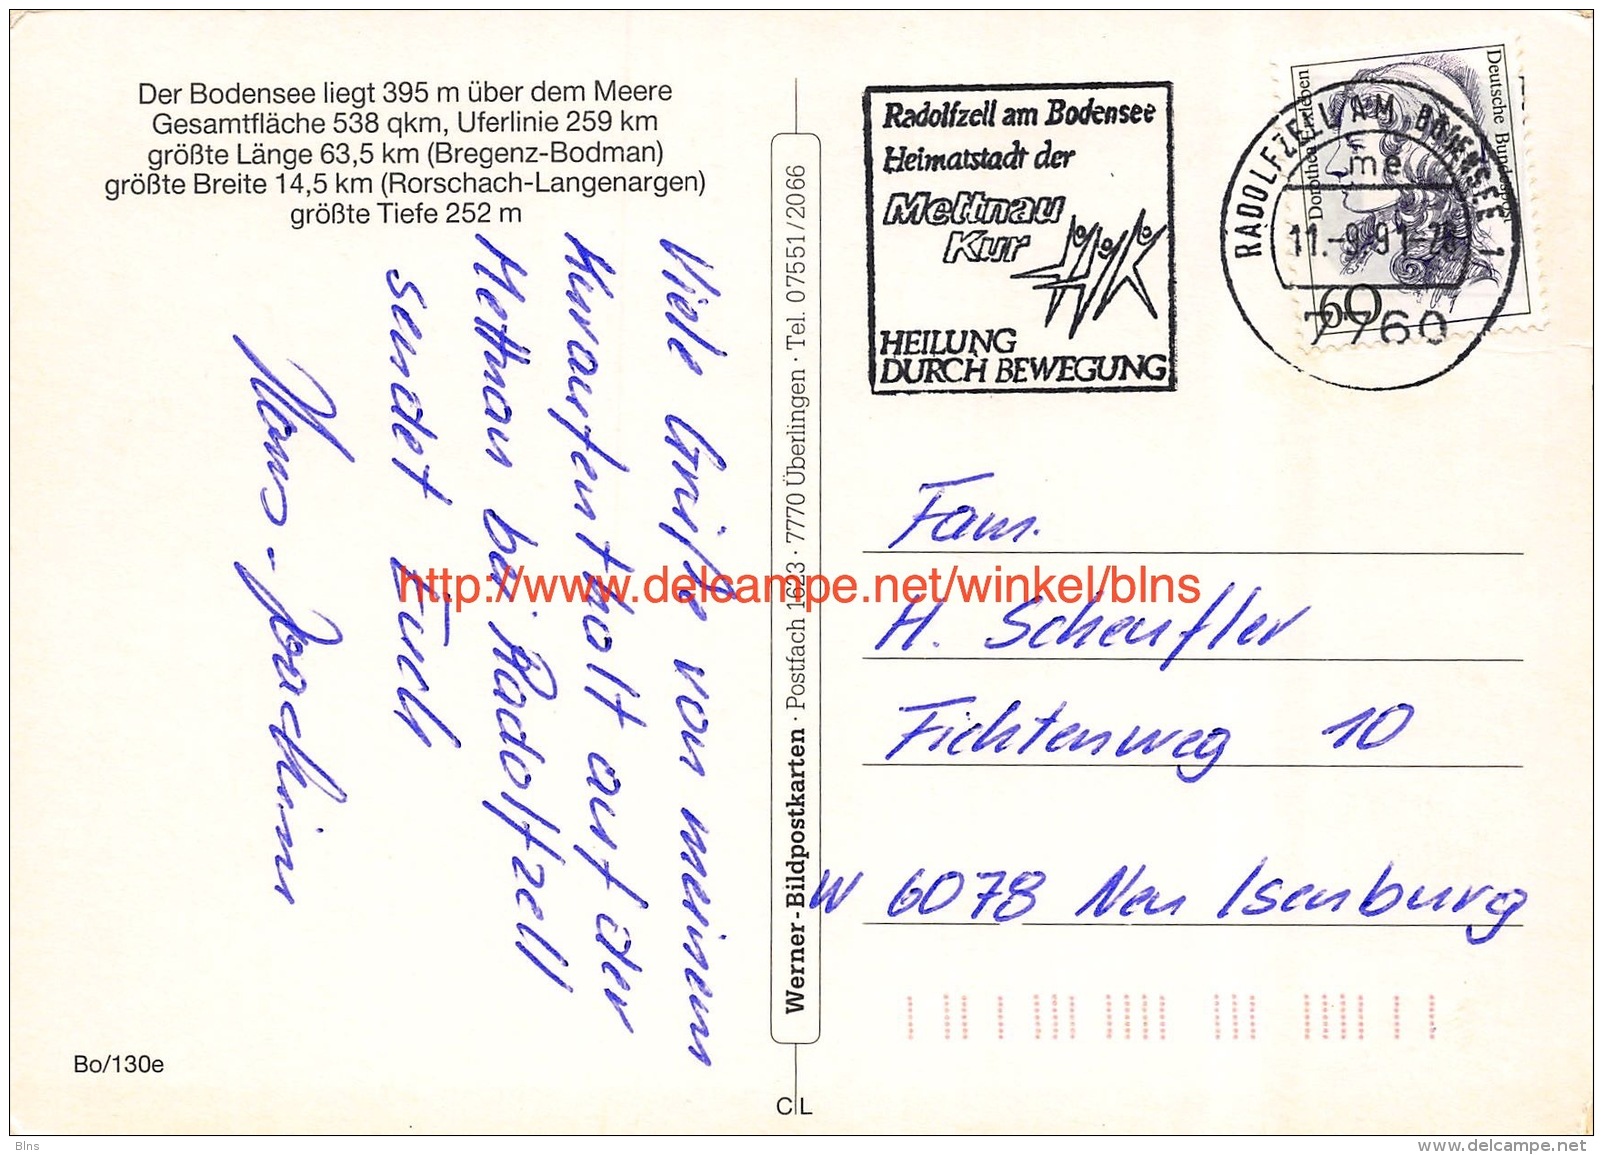 Der Bodensee liegt 395 m über dem Meere
Gesamtfläche 538 qkm, Uferlinie 259 km
größte Länge 63,5 km (Bregenz-Bodman)
größte Breite 14,5 km (Rorschach-Langenargen)
größte Tiefe 252 m
Viele Grüße von meinem
Kuraufenthalt auf der
Mettnau bei Radolfzell
sendet Euch
Hans-Joachim
Bo/130e
Werner-Bildpostkarten · Postfach 1623 · 7770 Überlingen · Tel. 07551/2066
C L
Radolfzell am Bodensee
Heimatstadt der
Mettnau
Kur
HEILUNG
DURCH BEWEGUNG
Deutsche Bundespost
Dorothea Erxleben
60
RADOLFZELL AM BODENSEE 1
me
11.-9.91-
7760
Fam.
H. Scheufler
Fichtenweg 10
W 6078 Neu Isenburg
http://www.delcampe.net/winkel/blns
Blns
www.delcampe.net